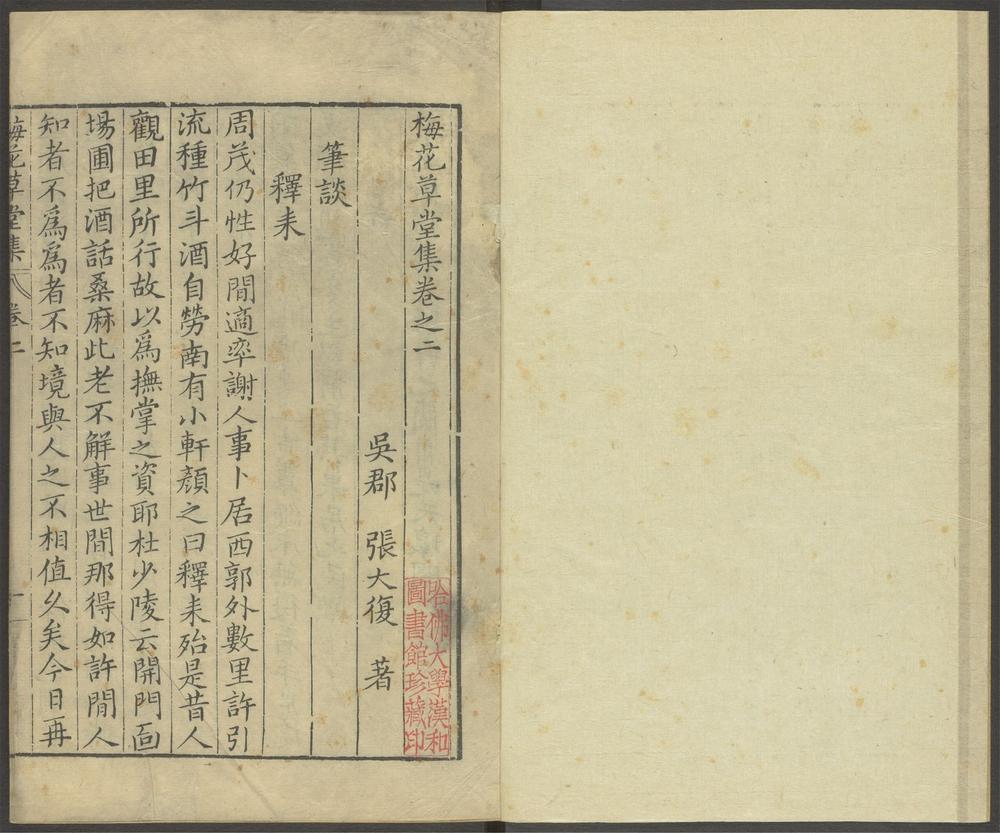 梅花草堂集卷之二
吳郡 張大復 著
筆談
釋耒
周茂仍性好閒適率謝人事卜居西郭外數里許引
流種竹斗酒自勞南有小軒顏之曰釋耒殆是昔人
觀田里所行故以爲撫掌之資耶杜少陵云開門面
場圃把酒話桑麻此老不解事世間那得如許閒人
知者不爲爲者不知境與人之不相值久矣今日再
梅花草堂集 卷二 一
哈佛大學漢和
圖書館珍藏印